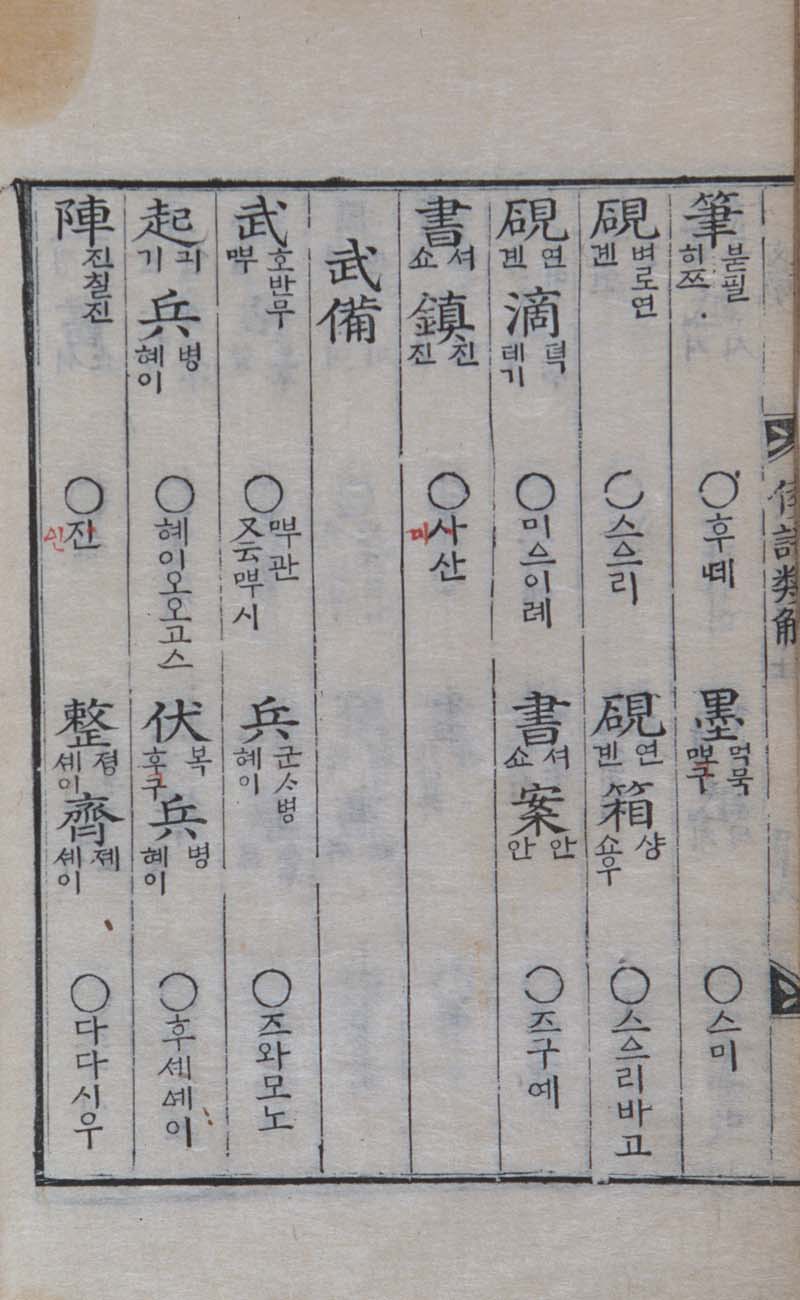 倭語類解
筆 붇필 히쯔 ○후뼤 墨 먹묵 구 ○스미
硯 벼로연 겐 ○스ᅀᅳ리 硯 연 겐 箱 샹 쇼우 ○스ᅀᅳ리바고
硯 연 겐 滴 뎍 데기 ○미ᅀᅳ이례 書 셔 쇼 案 안 안 ○즈구예
書 셔 쇼 鎮 진 진 ○사산 미
武備
武 호반무 ○관 又云시 兵 군ᄉ병 혜이 ○즈와모노
起 긔 기 兵 병 혜이 ○혜이오오고스 伏 복 후구 兵 병 혜이 ○후셰이
陣 진칠진 ○잔 신 整 졍 셰이 齊 졔 셰이 ○다다시우